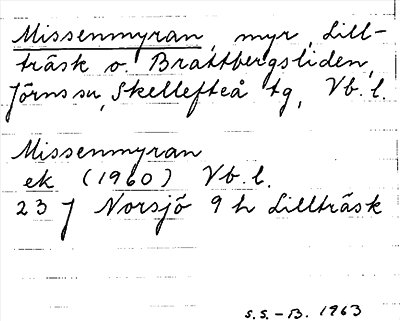 Missenmyran, myr, Lill-
träsk o. Brattbergsliden,
Jörns sn, Skellefteå tg, Vb. l.
Missenmyran
ek (1960) Vb. l.
23 J Norsjö 9 h Lillträsk
S.S. - B. 1963